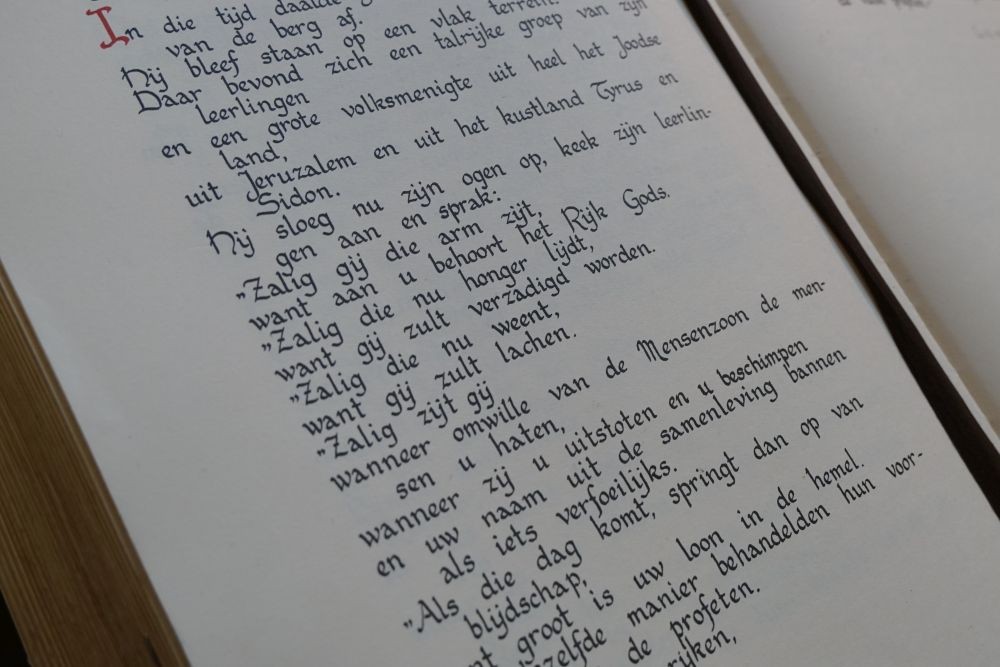 In die tijd daalde
van de berg af.
Hij bleef staan op een vlak terrein.
Daar bevond zich een talrijke groep van zijn
leerlingen
en een grote volksmenigte uit heel het Joodse
land,
uit Jeruzalem en uit het kustland Tyrus en
Sidon.
Hij sloeg nu zijn ogen op, keek zijn leerlin-
gen aan en sprak:
„Zalig gij die arm zijt,
want aan u behoort het Rijk Gods.
„Zalig die nu honger lijdt,
want gij zult verzadigd worden.
„Zalig die nu weent,
want gij zult lachen.
„Zalig zijt gij
wanneer omwille van de Mensenzoon de men-
sen u haten,
wanneer zij u uitstoten en u beschimpen
en uw naam uit de samenleving bannen
als iets verfoeilijks.
„Als die dag komt, springt dan op van
blijdschap;
groot is uw loon in de hemel.
manier behandelden hun voor-
de profeten.